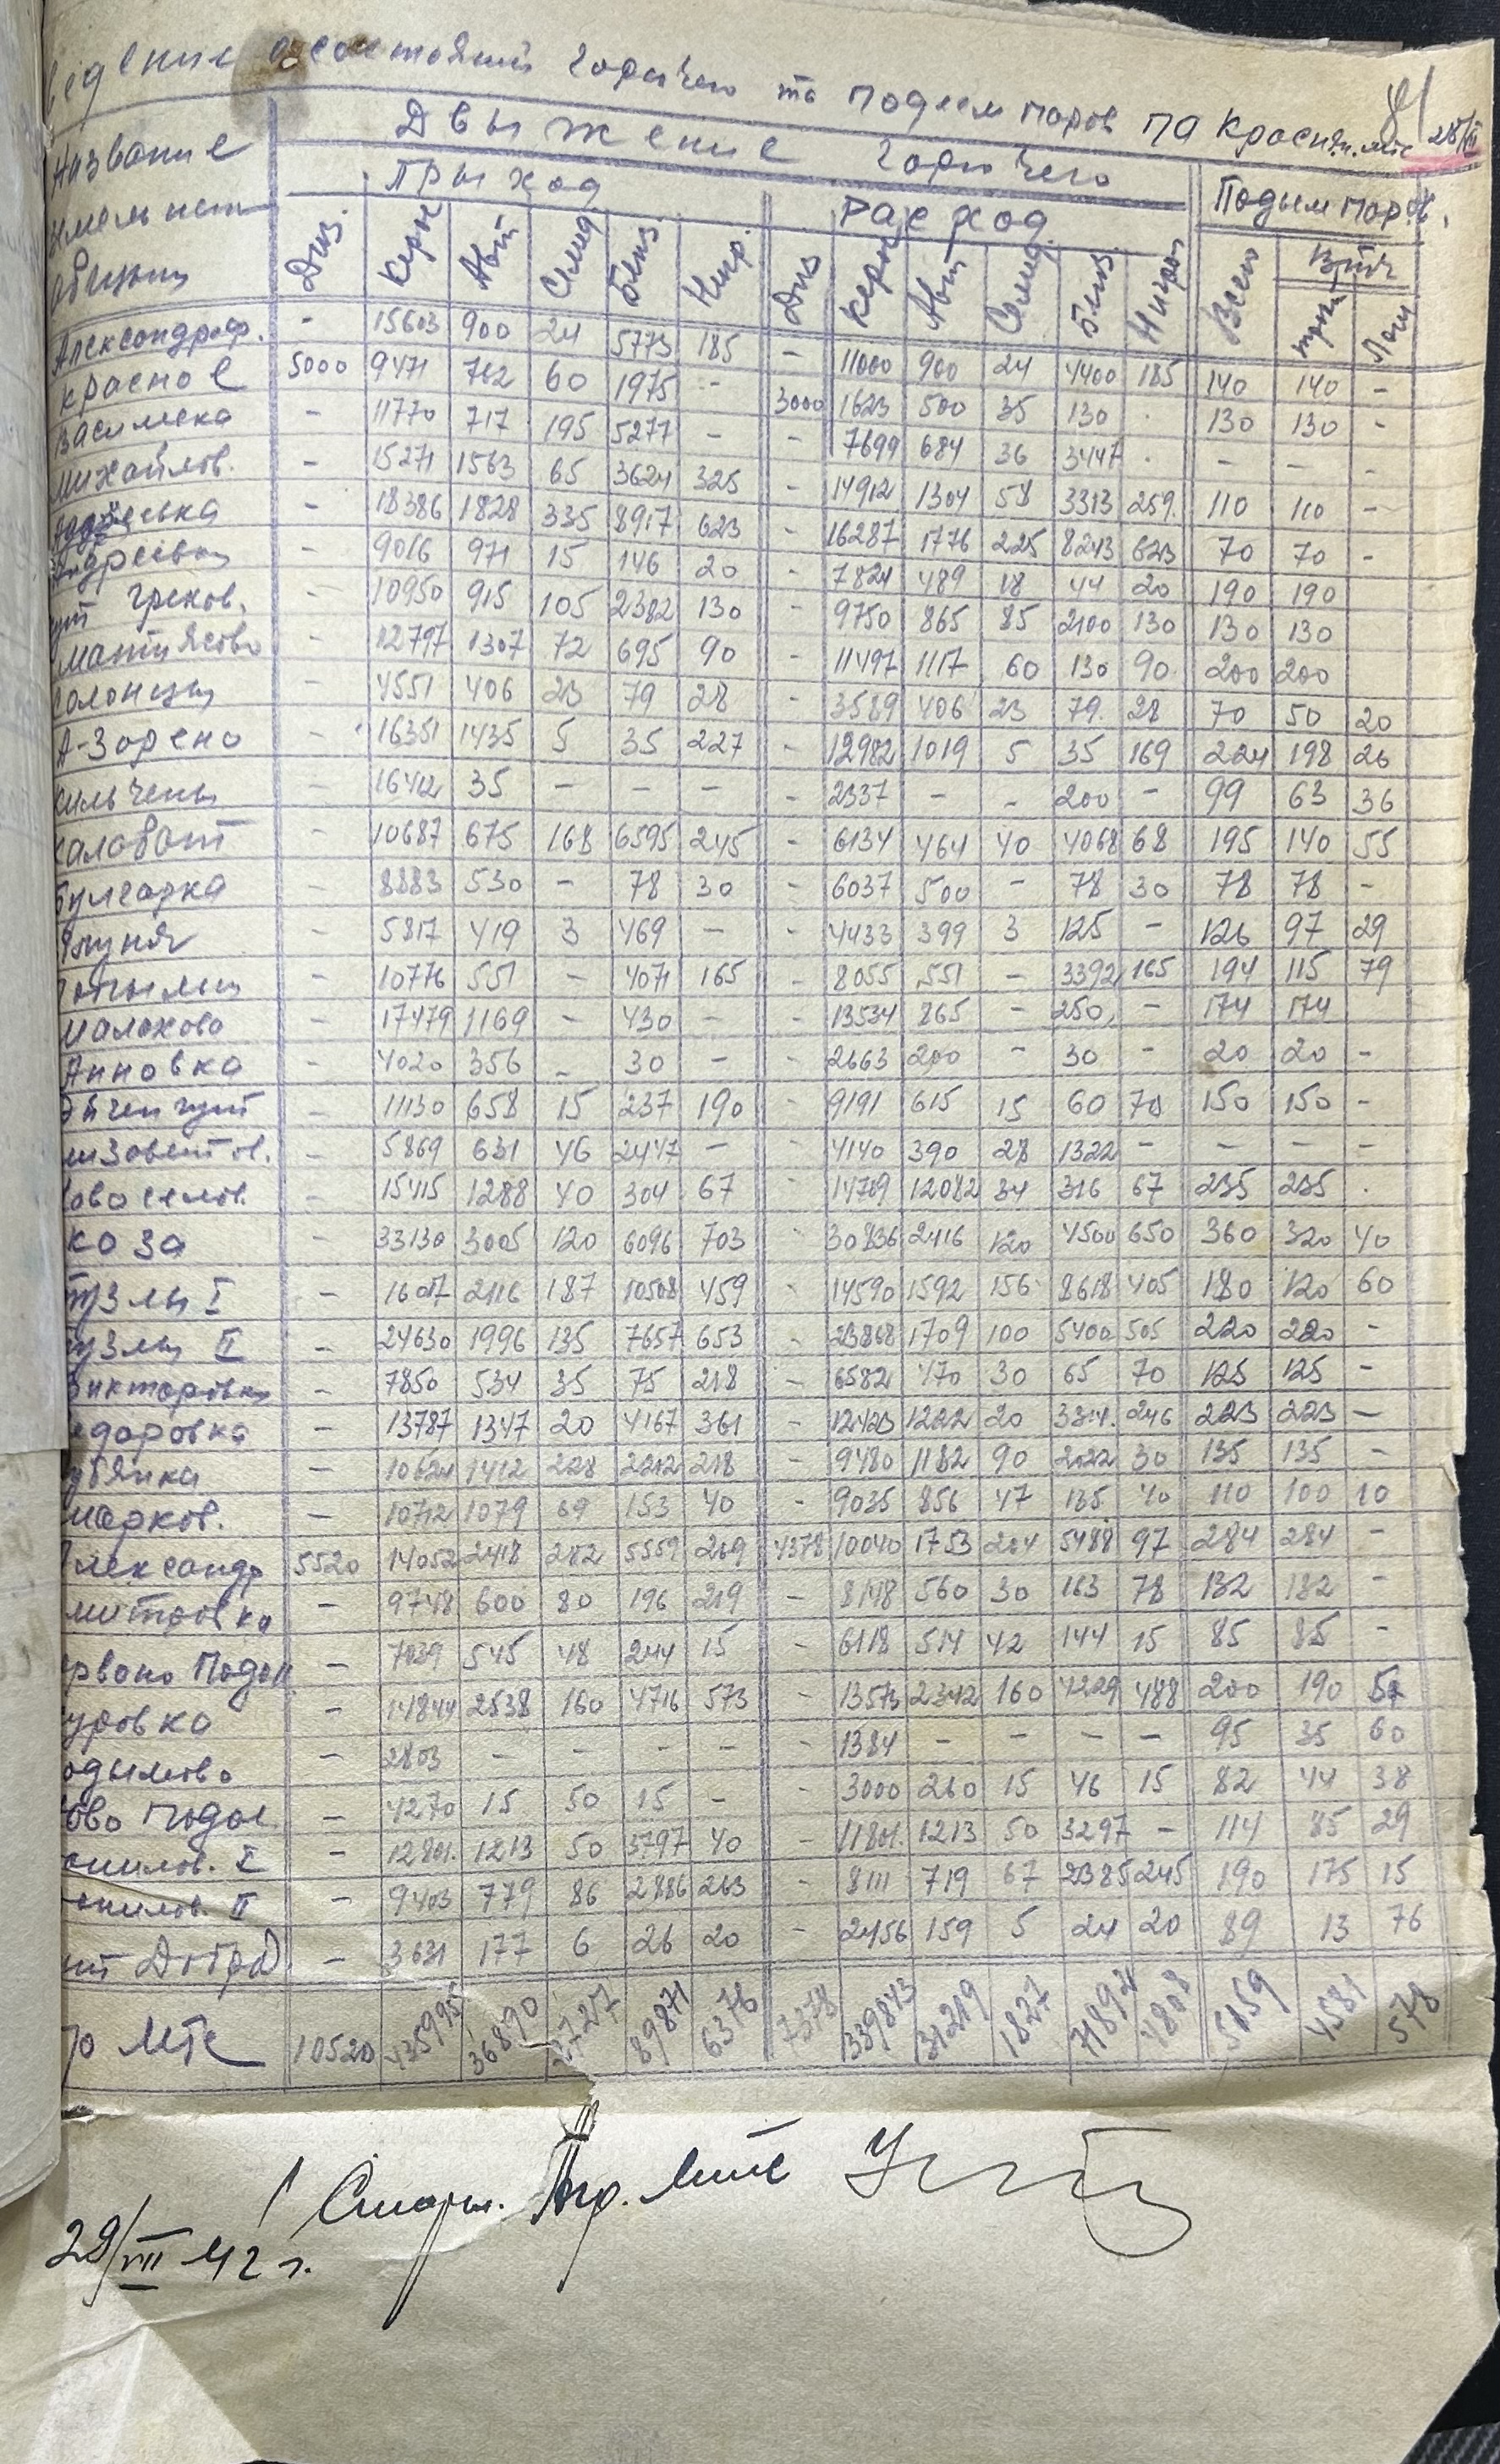 состояний горючего та подъем паров по Красн. мтс 28/VII
81
Название Движение горючего
Приход Расход Подъем паров.
Диз. Керос Авт Солид Бенз Нигр. Диз Керос Авт Солид Бенз Нигрол Всего трак Лош
Александроф. - 15603 900 24 5773 185 - 11000 900 24 4400 185 140 140 -
Красное 5000 9471 762 60 1975 - 3000 1623 500 35 130 . 130 130 -
Василевка - 11770 717 195 5277 - - 7699 684 36 3447 . - - -
Михайлов. - 15271 1563 65 3624 325 - 14912 1304 58 3313 259. 110 110 -
- 18386 1828 335 8917 623 - 16287 1776 225 8243 623 70 70 -
- 9016 971 15 146 20 - 7824 489 18 44 20 190 190
гут Греков. - 10950 915 105 2382 130 - 9750 865 85 2100 130 130 130
Матясово - 12797 1307 72 695 90 - 11497 1117 60 130 90 200 200
Солонцы - 4551 406 23 79 28 - 3589 406 23 79. 28 70 50 20
А-Зорено - 16351 1435 5 35 227 - 12982 1019 5 35 169 224 198 26
Кильчены - 16412 35 - - - - 2337 - - 200 - 99 63 36
Каловат - 10687 675 168 6595 245 - 6134 464 40 4068 68 195 140 55
Булгарка - 8883 530 - 78 30 - 6037 500 - 78 30 78 78 -
- 5817 419 3 469 - - 4433 399 3 125 - 126 97 29
- 10776 551 - 4071 165 - 8055 551 - 3392 165 194 115 79
Малахово - 17479 1169 - 430 - - 13534 865 - 250, - 174 174
Анновка - 4020 356 - 30 - - 2663 200 - 30 - 20 20 -
- 11130 658 15 237 190 - 9191 615 15 60 70 150 150 -
лизаветов. - 5869 631 46 2447 - - 4140 390 28 1322 - - - -
ово селов. - 15415 1288 40 304 67 - 14709 12082 34 316 67 235 235 .
каза - 33130 3005 120 6096 703 - 30836 2416 120 4500 650 360 320 40
тузлы I - 1607 2116 187 10508 459 - 14590 1592 156 8618 405 180 120 60
узлы II - 24630 1996 135 7657 653 - 23868 1709 100 5400 505 220 220 -
Викторовка - 7850 534 35 75 218 - 6582 470 30 65 70 125 125 -
едоровка - 13787 1347 20 4167 361 - 12423 1222 20 3314. 246 223 223 -
убянка - 10624 1412 228 2212 218 - 9480 1182 90 2022 30 135 135 -
Марков. - 10712 1079 69 153 40 - 9035 856 47 135 40 110 100 10
лександр 5520 14052 2418 282 5559 269 4378 10040 1753 204 5488 97 284 284 -
митровка - 9748 600 80 196 219 - 8148 560 30 163 78 132 132 -
рвоно Подол - 7039 545 48 244 15 - 6118 514 42 144 15 85 85 -
уровка - 14844 2538 160 4716 573 - 13573 2342 160 4229 488 200 190
одымово - 2803 - - - - 1384 - - - - 95 35 60
ово Подол. - 4270 15 50 15 - 3000 260 15 46 15 82 44 38
онилов. I - 12801. 1213 50 3797 40 - 11801. 1213 50 3297 - 114 85 29
онилов. II - 9403 779 86 2886 263 - 8111 719 67 2385 245 190 175 15
ит Добра - 3631 177 6 26 20 - 2456 159 5 24 20 89 13 76
го Мтс 10520 435995 36890 89871 6376 7378 339843 31219 1827 71892 4808 5159 4581 578
Старш. Агр. Мтс
29/VII 42 г.